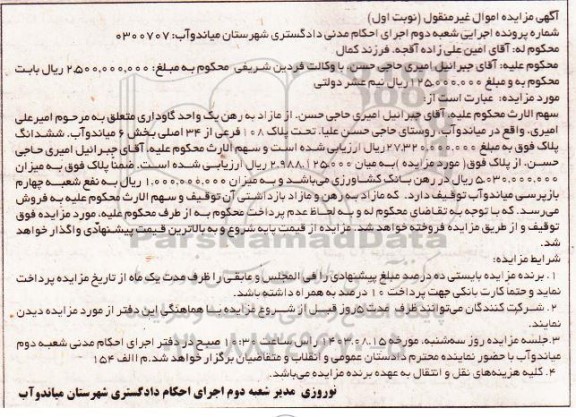 آگهی مزایده اموال غیرمنقول (نوبت اول)
شماره پرونده اجرایی شعبه دوم اجرای احکام مدنی دادگستری شهرستان میاندوآب: ۰۳۰۰۷۰۷
محکوم له: آقای امین علی زاده آقجه. فرزند کمال
محکوم علیه: آقای جبرائیل امیری حاجی حسن. با وکالت فردین شریفی محکوم به مبلغ: ۲،۵۰۰،۰۰۰،۰۰۰ ریال بابت
محکوم به و مبلغ ۱۲۵،۰۰۰،۰۰۰ ریال نیم عشر دولتی
مورد مزایده: عبارت است از:
سهم الارث محکوم علیه. آقای جبرائیل امیری حاجی حسن. از مازاد به رهن یک واحد گاوداری متعلق به مرحوم امیرعلی
امیری. واقع در میاندوآب. روستای حاجی حسن علیا. تحت پلاک ۱۰۸ فرعی از ۳۴ اصلی بخش ۶ میاندوآب. ششدانگ
پلاک فوق به مبلغ ۲۷،۳۲۰،۰۰۰،۰۰۰ ریال ارزیابی شده است و سهم الارث محکوم علیه. آقای جبرائیل امیری حاجی
حسن. از پلاک فوق( مورد مزایده ) به میان ۲،۹۸۸،۱۲۵،۰۰۰ ریال ارزیابی شده است. ضمناً پلاک فوق به میزان
۵،۰۳۰،۰۰۰،۰۰۰ ریال در رهن بانک کشاورزی می‌باشد و به میزان ۱،۰۰۰،۰۰۰،۰۰۰ ریال به نفع شعبه چهارم
بازپرسی میاندوآب توقیف دارد. که مازاد به رهن و مازاد بازداشتی آن توقیف و سهم الارث محکوم علیه به فروش
می‌رسد. که با توجه به تقاضای محکوم له و به لحاظ عدم پرداخت محکوم به از طرف محکوم علیه. مورد مزایده فوق
توقیف و از طریق مزایده فروخته خواهد شد. مزایده از قیمت پایه شروع و به بالاترین قیمت پیشنهادی واگذار خواهد
شد.
شرایط مزایده:
۱. برنده مزایده بایستی ده درصد مبلغ پیشنهادی را فی المجلس و مابقی را ظرف مدت یک ماه از تاریخ مزایده پرداخت
نماید و حتماً کارت بانکی جهت پرداخت ۱۰ درصد به همراه داشته باشد.
۲. شرکت کنندگان می‌توانند ظرف مدت ۵ روز قبل از شروع مزایده با هماهنگی این دفتر از مورد مزایده دیدن
نمایند.
۳. جلسه مزایده روز سه‌شنبه. مورخه ۱۴۰۳،۰۸،۱۵ راس ساعت ۱۰:۳۰ صبح در دفتر اجرای احکام مدنی شعبه دوم
میاندوآب با حضور نماینده محترم دادستان عمومی و انقلاب و متقاضیان برگزار خواهد شد.م الف ۱۵۴
۴. کلیه هزینه‌های نقل و انتقال به عهده برنده مزایده می‌باشد.
نوروزی مدیر شعبه دوم اجرای احکام دادگستری شهرستان میاندوآب
ParsNamadData